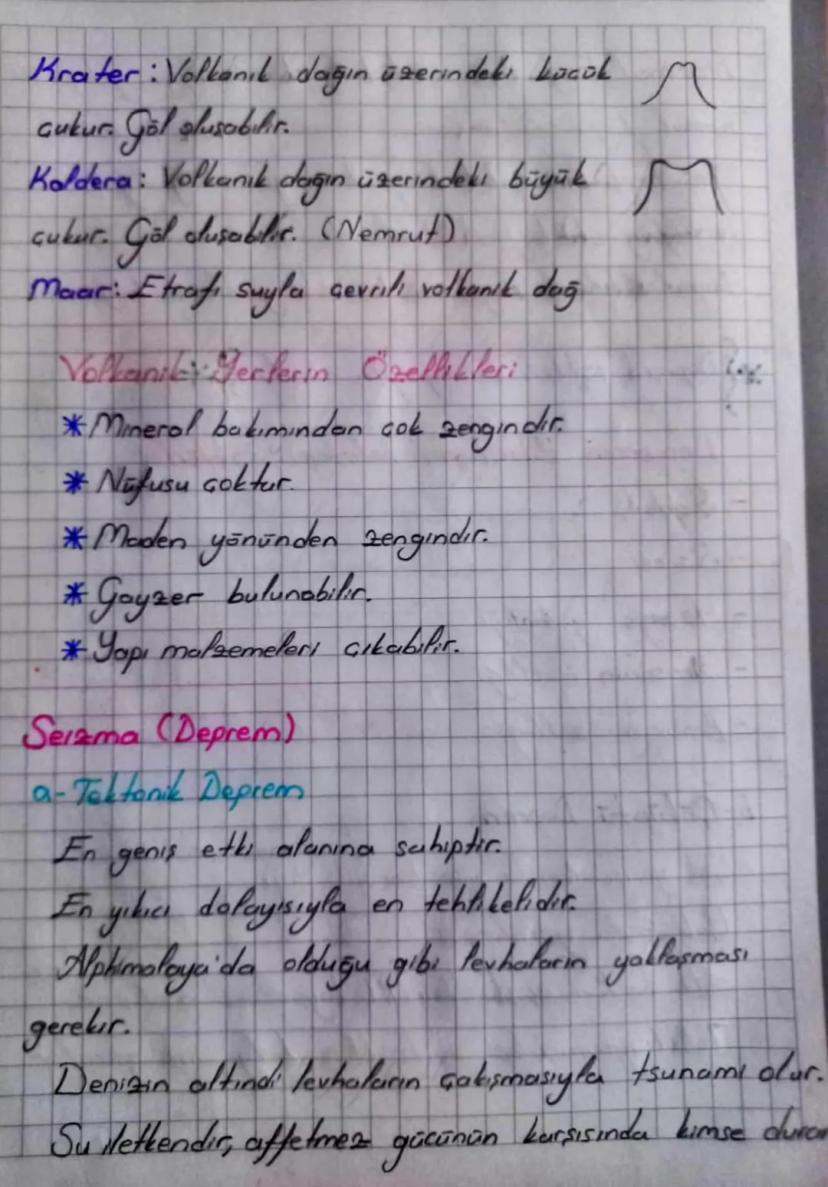 Krater: Volkanik dağın üzerindeki küçük
çukur. Göl oluşabilir.
Kaldera: Volkanik dağın üzerindeki büyük
çukur. Göl oluşabilir. (Nemrut)
Maar: Etrafı suyla çevrili volkanik dağ
Volkanik Yerlerin Özellikleri
* Mineral bakımından çok zengindir.
* Nüfusu çoktur.
* Maden yönünden zengindir.
* Gayzer bulunabilir.
* Yapı malzemeleri çıkabilir.
Seizma (Deprem)
a- Tektonik Deprem
En geniş etki alanına sahiptir.
En yıkıcı dolayısıyla en tehlikelidir.
Alphimalaya'da olduğu gibi levhaların yaklaşması
gerekir.
Denizin altındi levhaların çakışmasıyla tsunami olur.
Su iletkendir, affetmez gücünün karşısında kimse